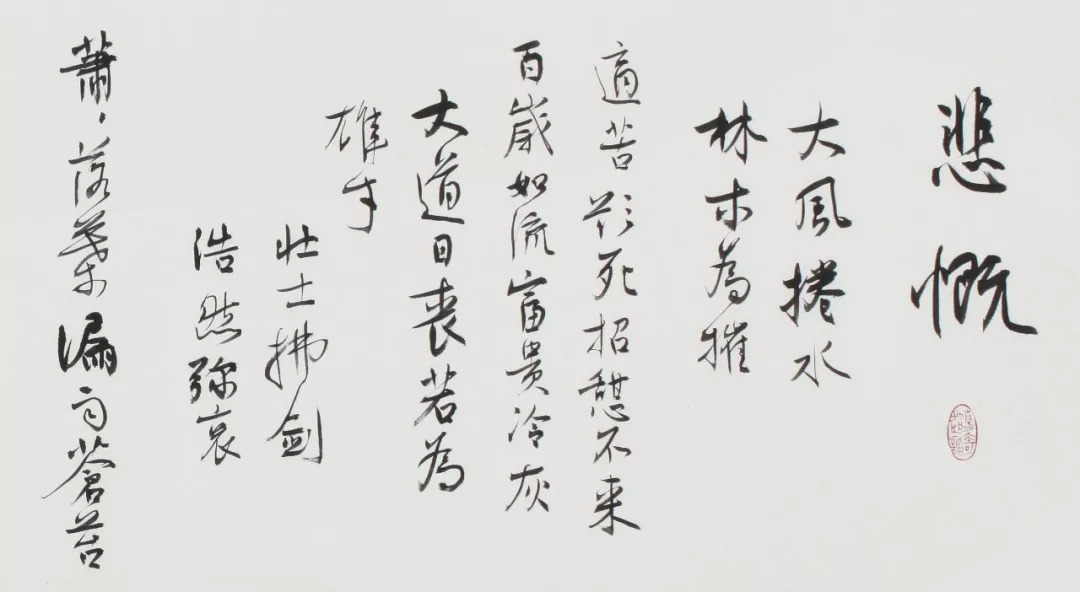 悲慨
大風捲水
林木為摧
適苦欲死招憩不来
百歲如流富貴冷灰
大道日喪若為
雄才
壯士拂劍
浩然弥哀
蕭々落葉漏雨蒼苔